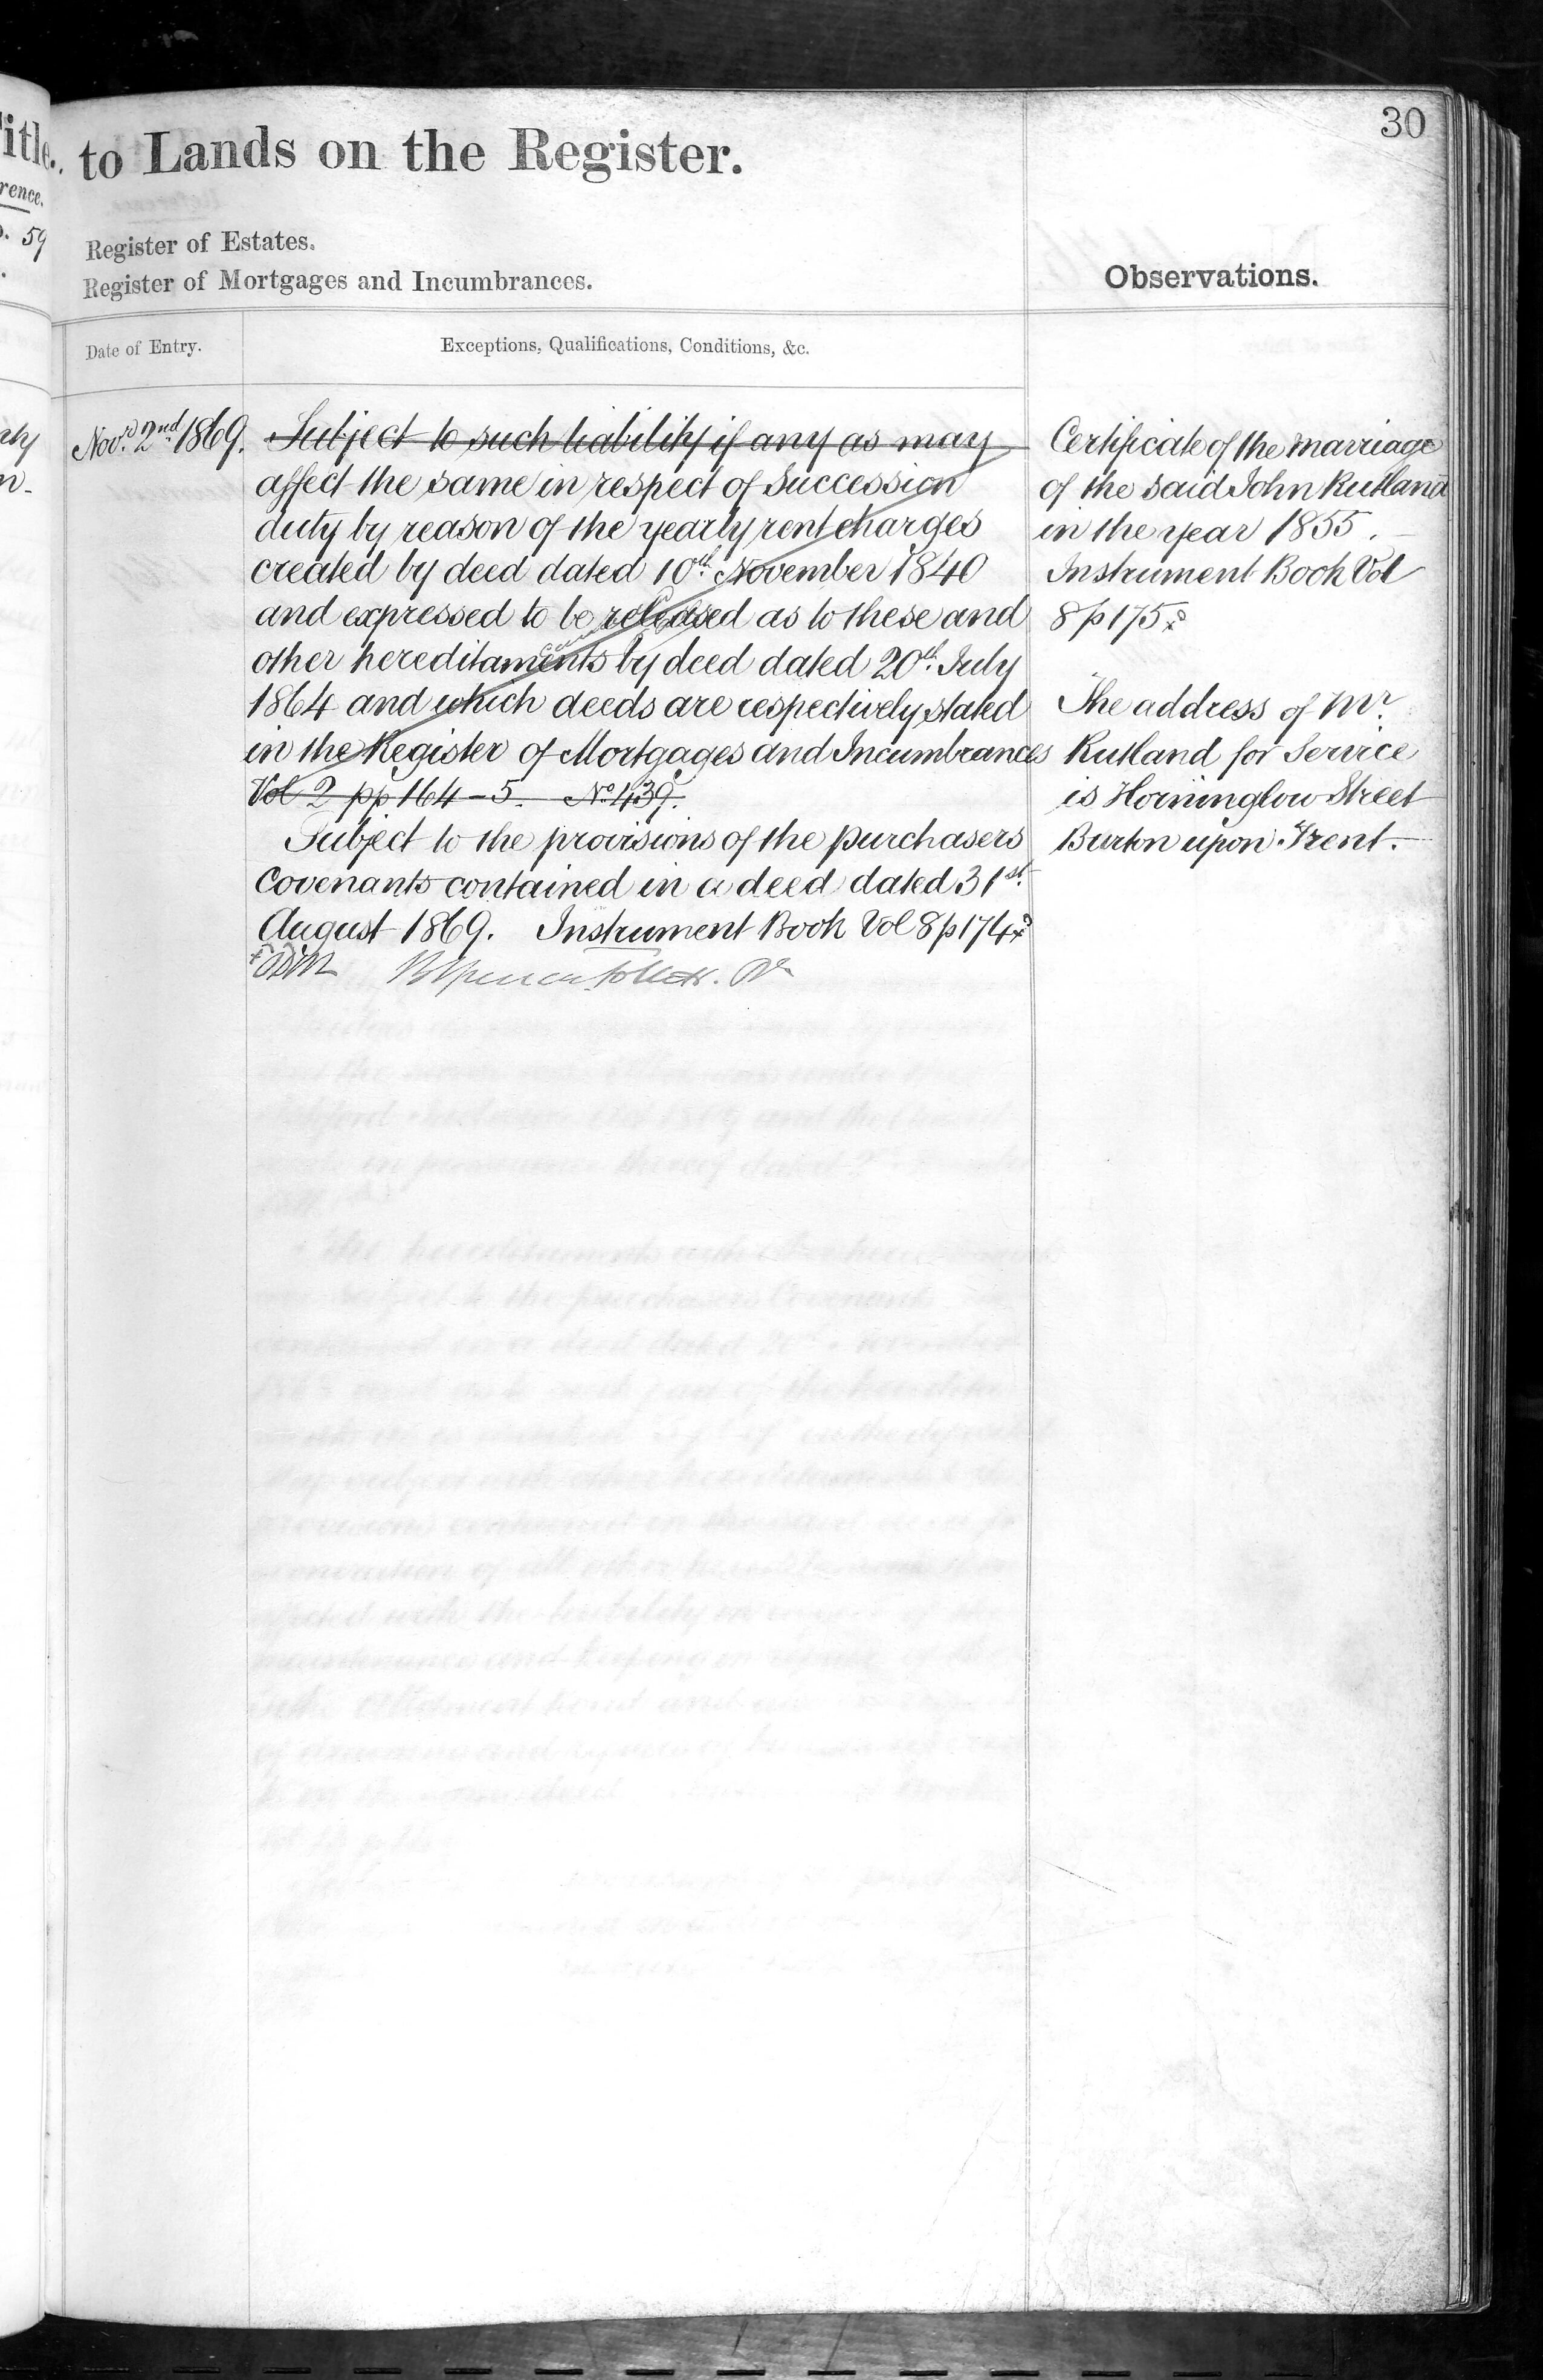 30
to Lands on the Register.
Register of Estates.
Register of Mortgages and Incumbrances.
Observations.
Date of Entry.
Exceptions, Qualifications, Conditions, &c.
Nov.r 2nd 1869.
Subject to such liability if any as may
affect the same in respect of Succession
duty by reason of the yearly rent charges
created by deed dated 10th November 1840
and expressed to be released as to these and
other hereditaments by deed dated 20th July
1864 and which deeds are respectively stated
in the Register of Mortgages and Incumbrances
Vol 2 pp 164-5. No. 439.
Subject to the provisions of the purchasers
Covenants contained in a deed dated 31st
August 1869. Instrument Book Vol 8 p 174
Certificate of the marriage
of the said John Rutland
in the year 1855.
Instrument Book Vol
8 p 175
The address of Mr.
Rutland for Service
is Horninglow Street
Burton upon Trent.
59